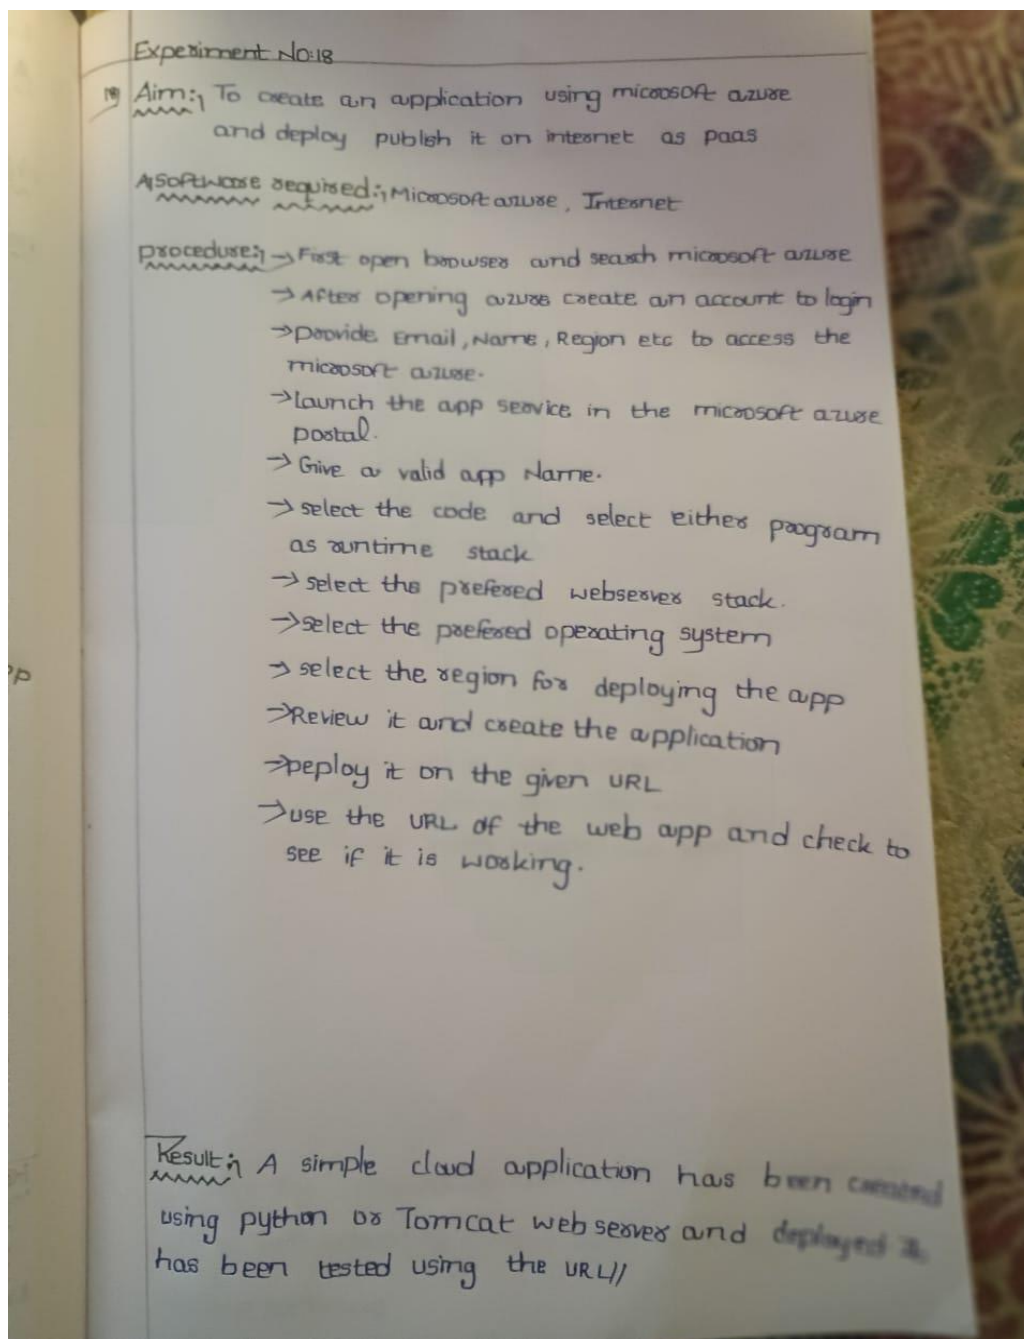 Experiment No:18
18) Aim:, To create an application using microsoft azure
and deploy publsh it on internet as paas
A) Software required:, Microsoft azure, Internet
procedure:, → First open browser and search microsoft azure
→ After opening azure create an account to login
→ provide Email, Name, Region etc to access the
microsoft azure.
→ Launch the app service in the microsoft azure
portal.
→ Give a valid app Name.
→ select the code and select either program
as runtime stack
→ select the prefered webserver stack.
→ select the prefered operating system
→ select the region for deploying the app
→ Review it and create the application
→ Deploy it on the given URL
pp
→ use the URL of the web app and check to
see if it is working.
Result:, A simple cloud application has been created
using python or Tomcat web server and deployed
has been tested using the URL//